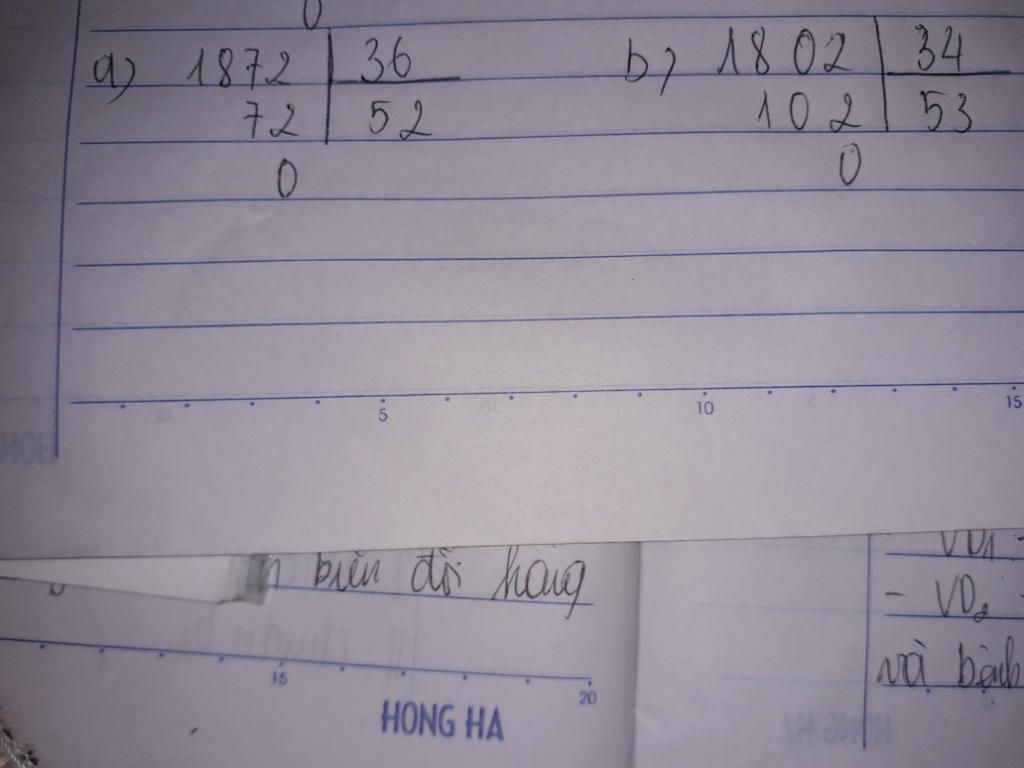 0
a) 1872 | 36    b) 1802 | 34
72 | 52    102 | 53
0    0
5    10    15
biến đổi hàng
VD1
- VD2
và bệnh
15    20
HONG HA